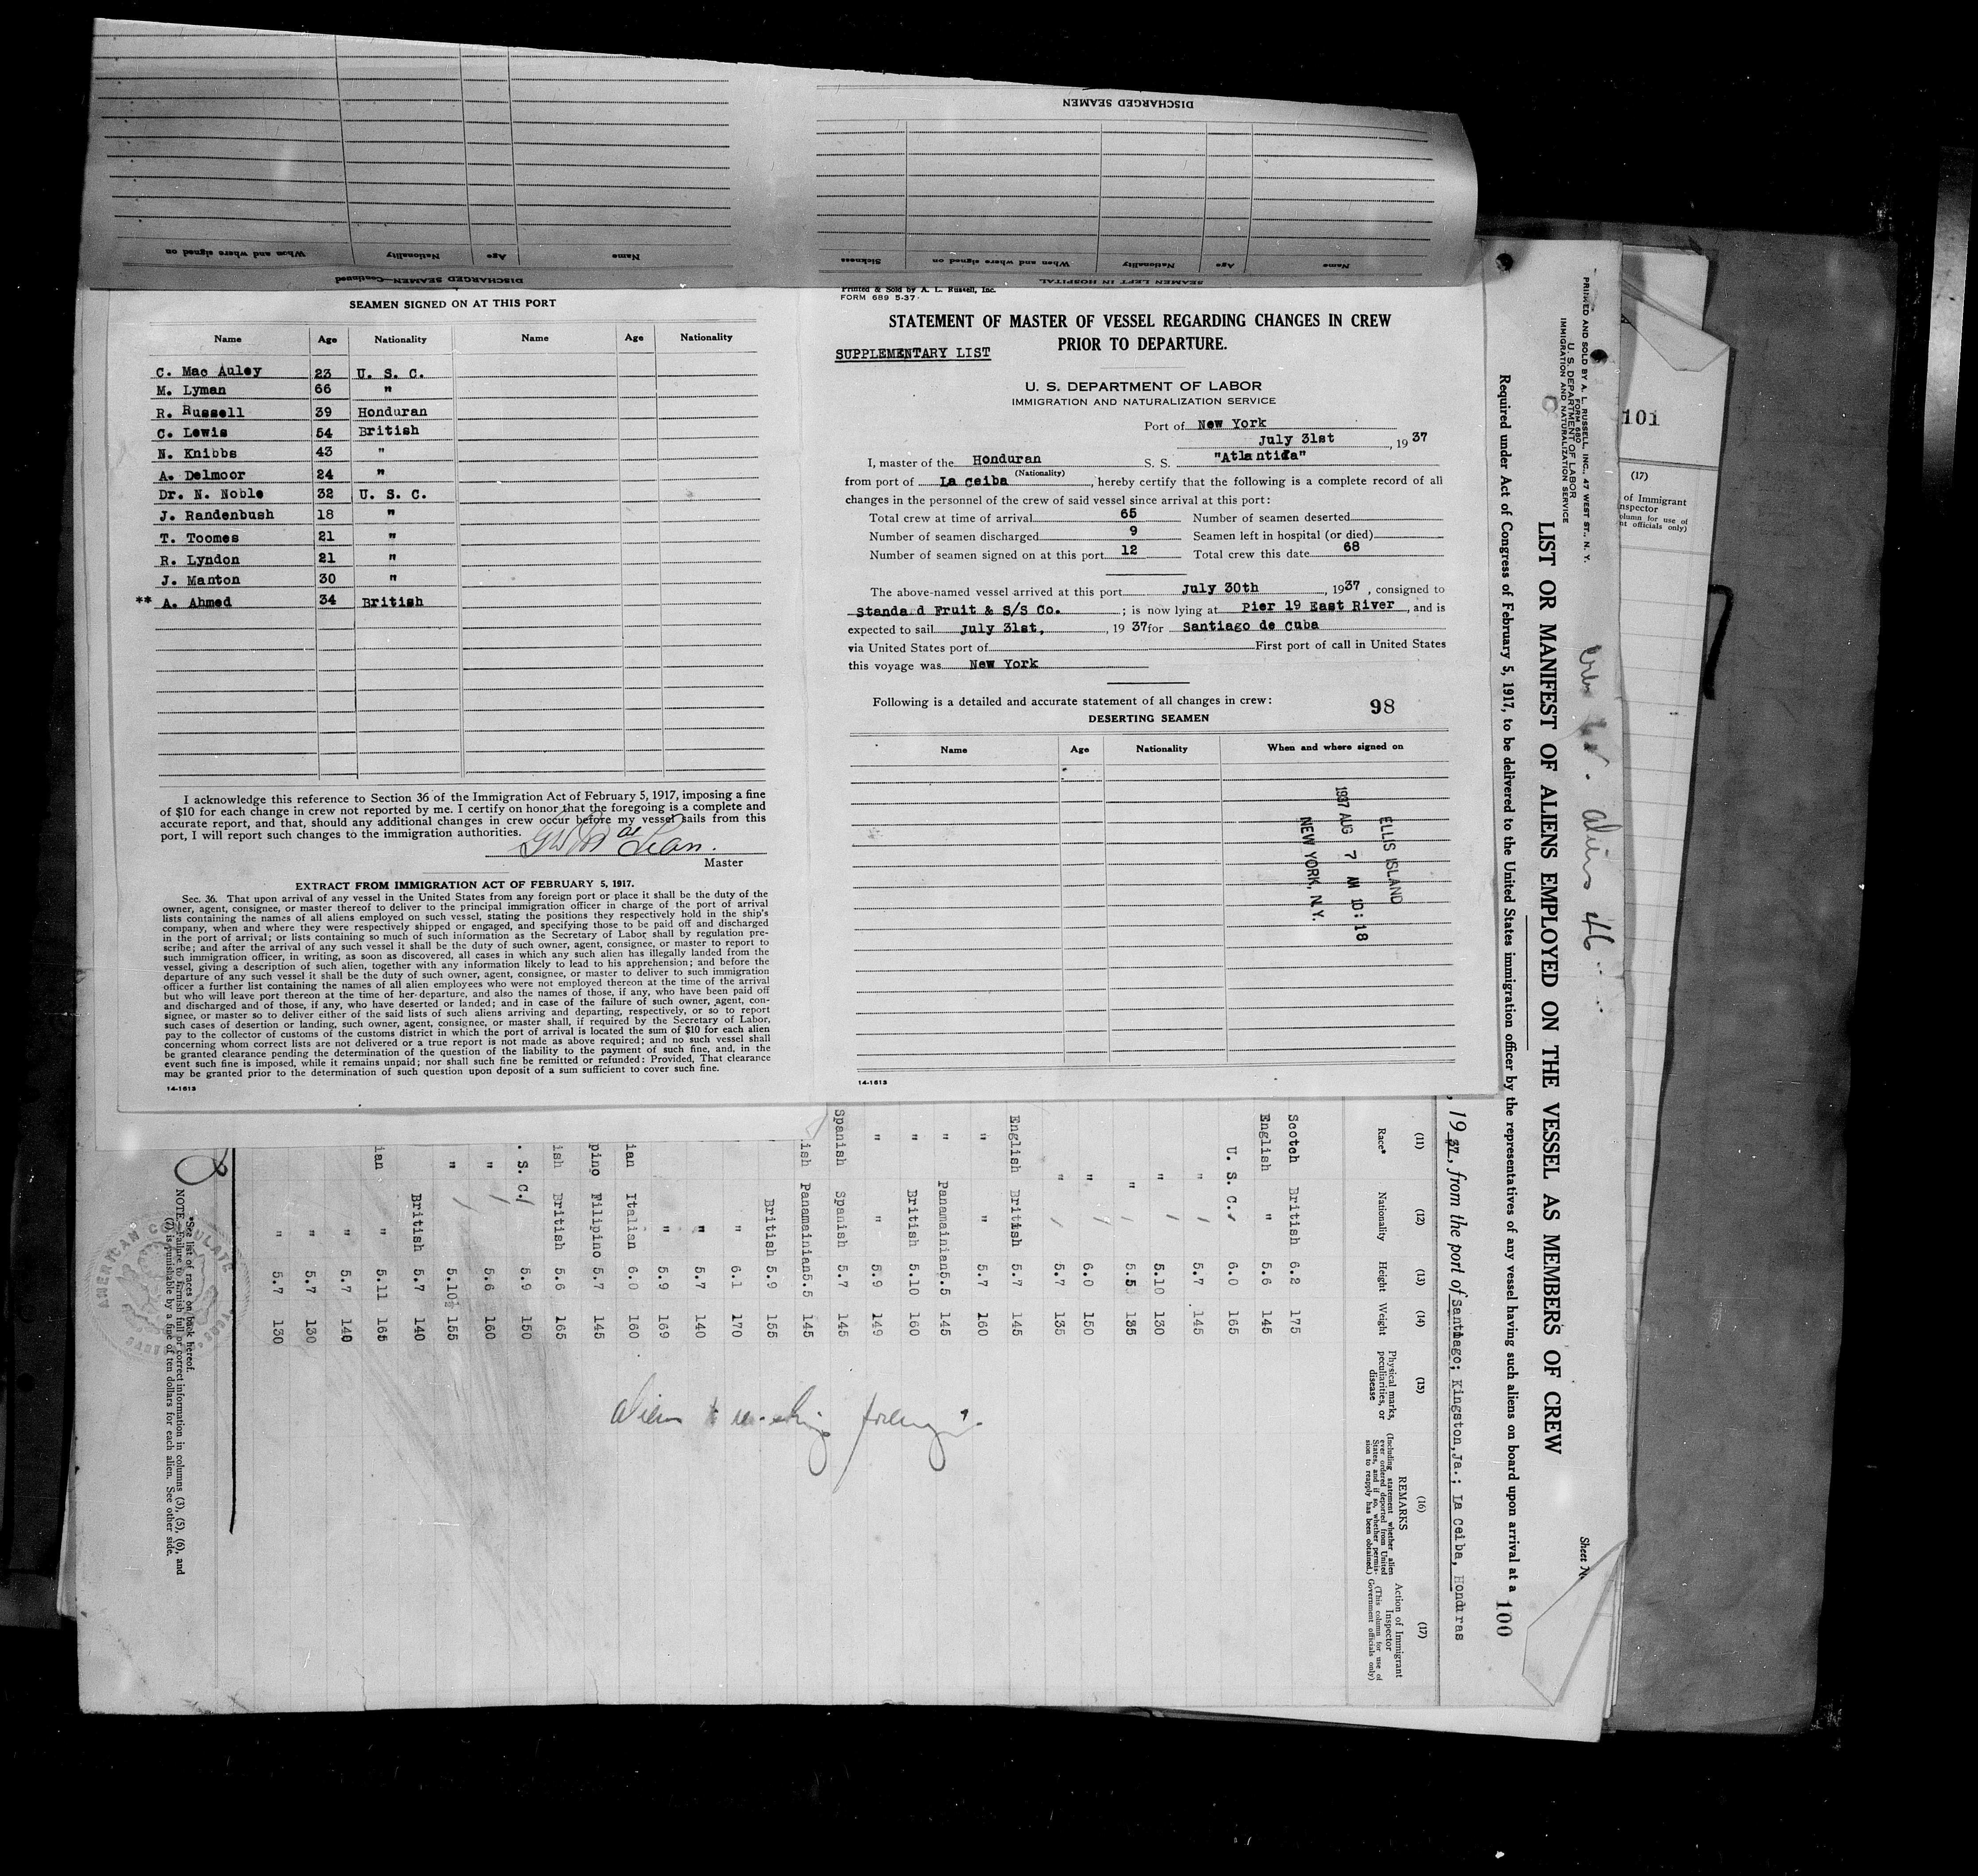 DISCHARGED SEAMEN
When and where signed on Nationality Age Name
DISCHARGED SEAMEN—Continued
Sickness When and where signed on Nationality Age Name
SEAMEN LEFT IN HOSPITAL
SEAMEN SIGNED ON AT THIS PORT
Name Age Nationality Name Age Nationality
C. Mac Auley 23 U. S. C.
M. Lyman 66 "
R. Russell 39 Honduran
C. Lewis 54 British
N. Knibbs 43 "
A. Delmoor 24 "
Dr. N. Noble 32 U. S. C.
J. Randenbush 18 "
T. Toomes 21 "
R. Lyndon 21 "
J. Manton 30 "
** A. Ahmed 34 British
I acknowledge this reference to Section 36 of the Immigration Act of February 5, 1917, imposing a fine
of $10 for each change in crew not reported by me. I certify on honor that the foregoing is a complete and
accurate report, and that, should any additional changes in crew occur before my vessel sails from this
port, I will report such changes to the immigration authorities.
Master
EXTRACT FROM IMMIGRATION ACT OF FEBRUARY 5, 1917.
Sec. 36. That upon arrival of any vessel in the United States from any foreign port or place it shall be the duty of the
owner, agent, consignee, or master thereof to deliver to the principal immigration officer in charge of the port of arrival
lists containing the names of all aliens employed on such vessel, stating the positions they respectively hold in the ship's
company, when and where they were respectively shipped or engaged, and specifying those to be paid off and discharged
in the port of arrival; or lists containing so much of such information as the Secretary of Labor shall by regulation pre-
scribe; and after the arrival of any such vessel it shall be the duty of such owner, agent, consignee, or master to report to
such immigration officer, in writing, as soon as discovered, all cases in which any such alien has illegally landed from the
vessel, giving a description of such alien, together with any information likely to lead to his apprehension; and before the
departure of any such vessel it shall be the duty of such owner, agent, consignee, or master to deliver to such immigration
officer a further list containing the names of all alien employees who were not employed thereon at the time of the arrival
but who will leave port thereon at the time of her departure, and also the names of those, if any, who have been paid off
and discharged and of those, if any, who have deserted or landed; and in case of the failure of such owner, agent, con-
signee, or master so to deliver either of the said lists of such aliens arriving and departing, respectively, or so to report
such cases of desertion or landing, such owner, agent, consignee, or master shall, if required by the Secretary of Labor,
pay to the collector of customs of the customs district in which the port of arrival is located the sum of $10 for each alien
concerning whom correct lists are not delivered or a true report is not made as above required; and no such vessel shall
be granted clearance pending the determination of the question of the liability to the payment of such fine, and, in the
event such fine is imposed, while it remains unpaid; nor shall such fine be remitted or refunded: Provided, That clearance
may be granted prior to the determination of such question upon deposit of a sum sufficient to cover such fine.
14-1613
Printed & Sold by A. L. Russell, Inc.
FORM 689 5-37
STATEMENT OF MASTER OF VESSEL REGARDING CHANGES IN CREW
PRIOR TO DEPARTURE.
SUPPLEMENTARY LIST
U. S. DEPARTMENT OF LABOR
IMMIGRATION AND NATURALIZATION SERVICE
Port of New York
July 31st, 19 37
I, master of the Honduran S. S. "Atlantida"
(Nationality)
from port of La Ceiba, hereby certify that the following is a complete record of all
changes in the personnel of the crew of said vessel since arrival at this port:
Total crew at time of arrival 65 Number of seamen deserted
Number of seamen discharged 9 Seamen left in hospital (or died)
Number of seamen signed on at this port 12 Total crew this date 68
The above-named vessel arrived at this port July 30th, 1937, consigned to
Standard Fruit & S/S Co.; is now lying at Pier 19 East River, and is
expected to sail July 31st, , 19 37 for Santiago de Cuba
via United States port of First port of call in United States
this voyage was New York
Following is a detailed and accurate statement of all changes in crew: 98
DESERTING SEAMEN
Name Age Nationality When and where signed on
ELLIS ISLAND
1937 AUG 7 AM 10:18
NEW YORK, N.Y.
14-1613
PRINTED AND SOLD BY A. L. RUSSELL, INC., 47 WEST ST., N. Y.
FORM 680
U. S. DEPARTMENT OF LABOR
IMMIGRATION AND NATURALIZATION SERVICE
aliens 46
Sheet N
LIST OR MANIFEST OF ALIENS EMPLOYED ON THE VESSEL AS MEMBERS OF CREW
Required under Act of Congress of February 5, 1917, to be delivered to the United States immigration officer by the representatives of any vessel having such aliens on board upon arrival at a 100
, 19 37, from the port of Santiago; Kingston,Ja.; La Ceiba, Honduras
(11) (12) (13) (14) (15) (16) (17)
Race* Nationality Height Weight
Physical marks, peculiarities, or disease
REMARKS
(Including statement whether alien ever ordered deported from United States, and if so, whether permission to reapply has been obtained.)
Action of Immigrant Inspector
(This column for use of Government officials only)
Scotch British 6.2 175
English " 5.6 145
U. S. C. 6.0 165
" 5.7 145
" 5.10 130
" 5.5 135
" 6.0 150
" 5.7 135
English British 5.7 145
" " 5.7 160
" Panamainian5.5 145
" British 5.10 160
" " 5.9 149
Spanish Spanish 5.7 145
ish Panamainian5.5 145
British 5.9 155
" 6.1 170
" 5.7 140
" 5.9 169
ian Italian 6.0 160
pino Filipino 5.7 145
ish British 5.6 165
. S. C. 5.9 150
" 5.6 160
" 5.10½ 155
British 5.7 140
ian " 5.11 165
" 5.7 140
" 5.7 130
" 5.7 130
*See list of races on back hereof.
NOTE.—Failure to furnish full or correct information in columns (3), (5), (6), and
(7) is punishable by a fine of ten dollars for each alien. See other side.
AMERICAN CONSULATE
101
(17)
of Immigrant
nspector
olumn for use of
nt officials only)